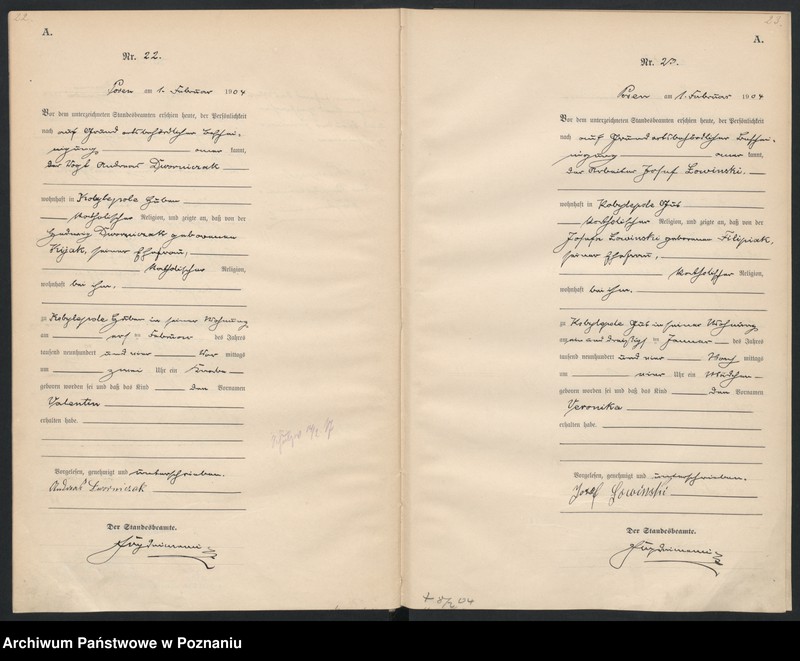 22
A.
Nr. 22.
Posen am 1. Februar 1904
Vor dem unterzeichneten Standesbeamten erschien heute, der Persönlichkeit
nach auf Grund ortsbehördlicher Beschei-
nigung kannt,
der Vogt Andreas Dworniczak
wohnhaft in Kobylepole Huben
katholischer Religion, und zeigte an, daß von der
Hedwig Dworniczak geborenen
Kijak, seiner Ehefrau,
katholischer Religion,
wohnhaft bei ihm.
zu Kobylepole Huben in seiner Wohnung
am ersten Februar des Jahres
tausend neunhundert und vier Vor mittags
um zwei Uhr ein Knabe
geboren worden sei und daß das Kind den Vornamen
Valentin
erhalten habe.
Vorgelesen, genehmigt und unterschrieben.
Andreas Dworniczak
Der Standesbeamte.
23
A.
Nr. 23.
Posen am 1. Februar 1904
Vor dem unterzeichneten Standesbeamten erschien heute, der Persönlichkeit
nach auf Grund ortsbehördlicher Beschei-
nigung kannt,
der Arbeiter Josef Lowinski.
wohnhaft in Kobylepole Gut
katholischer Religion, und zeigte an, daß von der
Josefa Lowinski geborenen Filipiak,
seiner Ehefrau,
katholischer Religion,
wohnhaft bei ihm.
zu Kobylepole Gut in seiner Wohnung
am ein und dreißigsten Januar des Jahres
tausend neunhundert und vier Nach mittags
um vier Uhr ein Mädchen
geboren worden sei und daß das Kind den Vornamen
Veronika
erhalten habe.
Vorgelesen, genehmigt und unterschrieben.
Josef Lowinski
Der Standesbeamte.
Archiwum Państwowe w Poznaniu